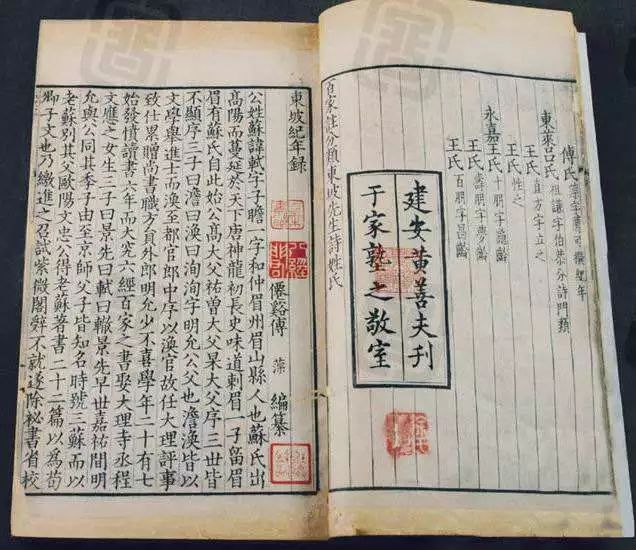 傅氏 藻字薦可撰紀年
東萊呂氏 祖謙字伯恭分詩門類
王氏 直方字立之
王氏 性之
永嘉王氏 十朋字龜齡
王氏 壽朋字夢齡
王氏 百朋字昌齡
建安黃善夫刊
于家塾之敬室
百家註分類東坡先生詩姓氏
東坡紀年錄
僊谿傅 藻 編纂
公姓蘇諱軾字子瞻一字和仲眉州眉山縣人也蘇氏出
高陽而蔓延於天下唐神龍初長史味道刺眉一子留眉
眉有蘇氏自此始公高大父祐曾大父杲大父序三世皆
不顯序三子曰澹曰渙曰洵洵字明允公父也澹渙皆以
文學舉進士而渙至都官郎中序以渙官故任大理評事
致仕累贈尚書職方員外郎明允少不喜學年二十有七
始發憤讀書六年而大究六經百家之書娶大理寺丞程
文應之女生三子曰景先曰軾曰轍景先早世嘉祐間明
允與公同其季子由至京師父子皆知名時號三蘇而以
老蘇別其父歐陽文忠公得老蘇著書二十二篇以為荀
卿子文也乃繳進之召試紫微閣辭不就遂除祕書省校